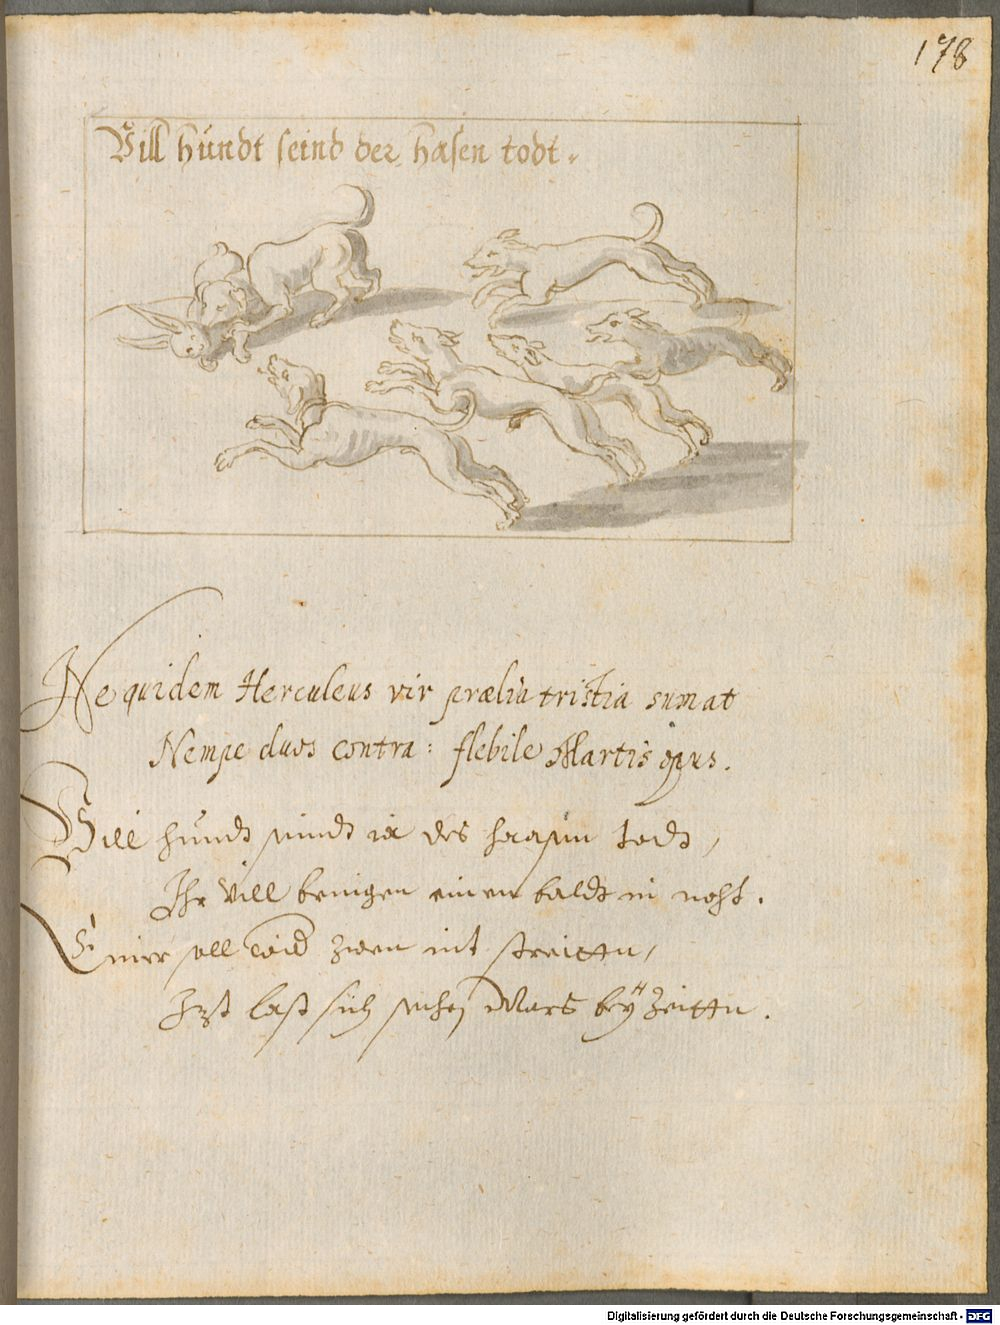 178
Vill hündt seind der hasen todt.
Ne quidem Herculeus vir prælia tristia sumat
Nempe duos contra: flebile Martis opus.
Vill hündt seindt ia des haasen todt,
Ihr vill bringen einen baldt in noht.
Einer soll wid zwen nit streitten,
Izt last sich sehen Mars beÿ Zeitten.
Digitalisierung gefördert durch die Deutsche Forschungsgemeinschaft - DFG